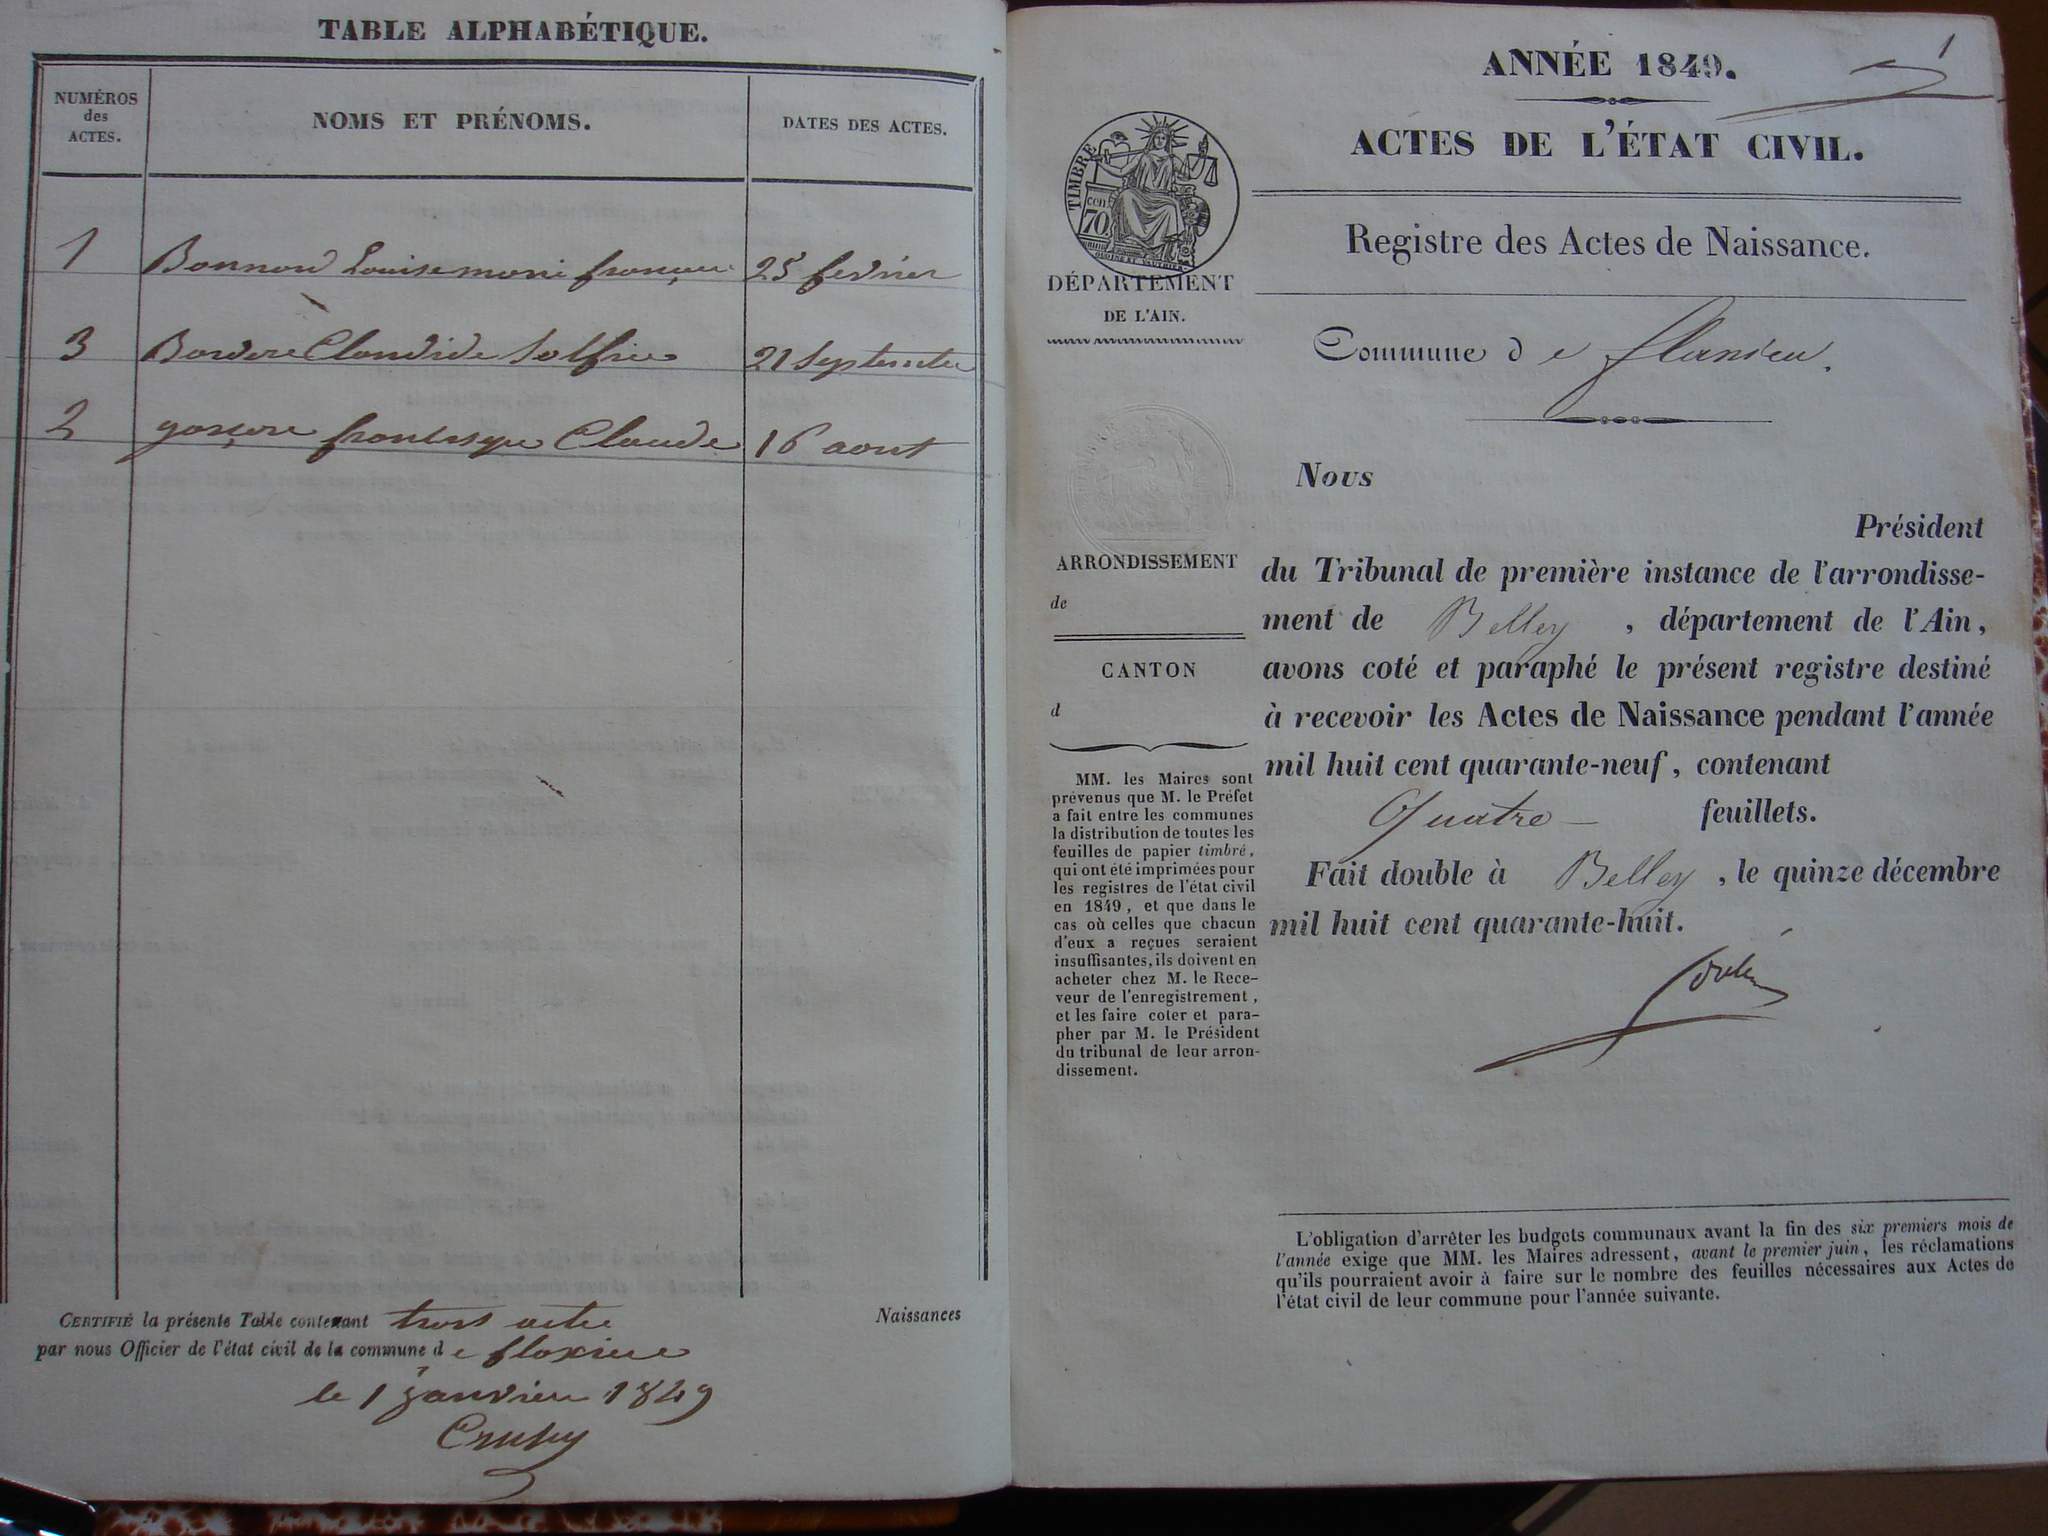 TABLE ALPHABÉTIQUE.
NUMÉROS
des
ACTES.
NOMS ET PRÉNOMS.
DATES DES ACTES.
1 Bonnard Louise marie 25 fevrier
3 Claudide 21 Septembre
2 Claude 16 aout
CERTIFIÉ la présente Table contenant trois acte Naissances
par nous Officier de l'état civil de la commune de
le 1 janvier 1849
1
ANNÉE 1849.
ACTES DE L'ÉTAT CIVIL.
TIMBRE
cen
70
Registre des Actes de Naissance.
DÉPARTEMENT
DE L'AIN.
Commune de
Nous
Président
ARRONDISSEMENT
de
CANTON
d
du Tribunal de première instance de l'arrondisse-
ment de Belley, département de l'Ain,
avons coté et paraphé le présent registre destiné
à recevoir les Actes de Naissance pendant l'année
mil huit cent quarante-neuf, contenant
Quatre feuillets.
Fait double à Belley, le quinze décembre
mil huit cent quarante-huit.
MM. les Maires sont
prévenus que M. le Préfet
a fait entre les communes
la distribution de toutes les
feuilles de papier timbré,
qui ont été imprimées pour
les registres de l'état civil
en 1849, et que dans le
cas où celles que chacun
d'eux a reçues seraient
insuffisantes, ils doivent en
acheter chez M. le Rece-
veur de l'enregistrement,
et les faire coter et para-
pher par M. le Président
du tribunal de leur arron-
dissement.
L'obligation d'arrêter les budgets communaux avant la fin des six premiers mois de
l'année exige que MM. les Maires adressent, avant le premier juin, les réclamations
qu'ils pourraient avoir à faire sur le nombre des feuilles nécessaires aux Actes de
l'état civil de leur commune pour l'année suivante.